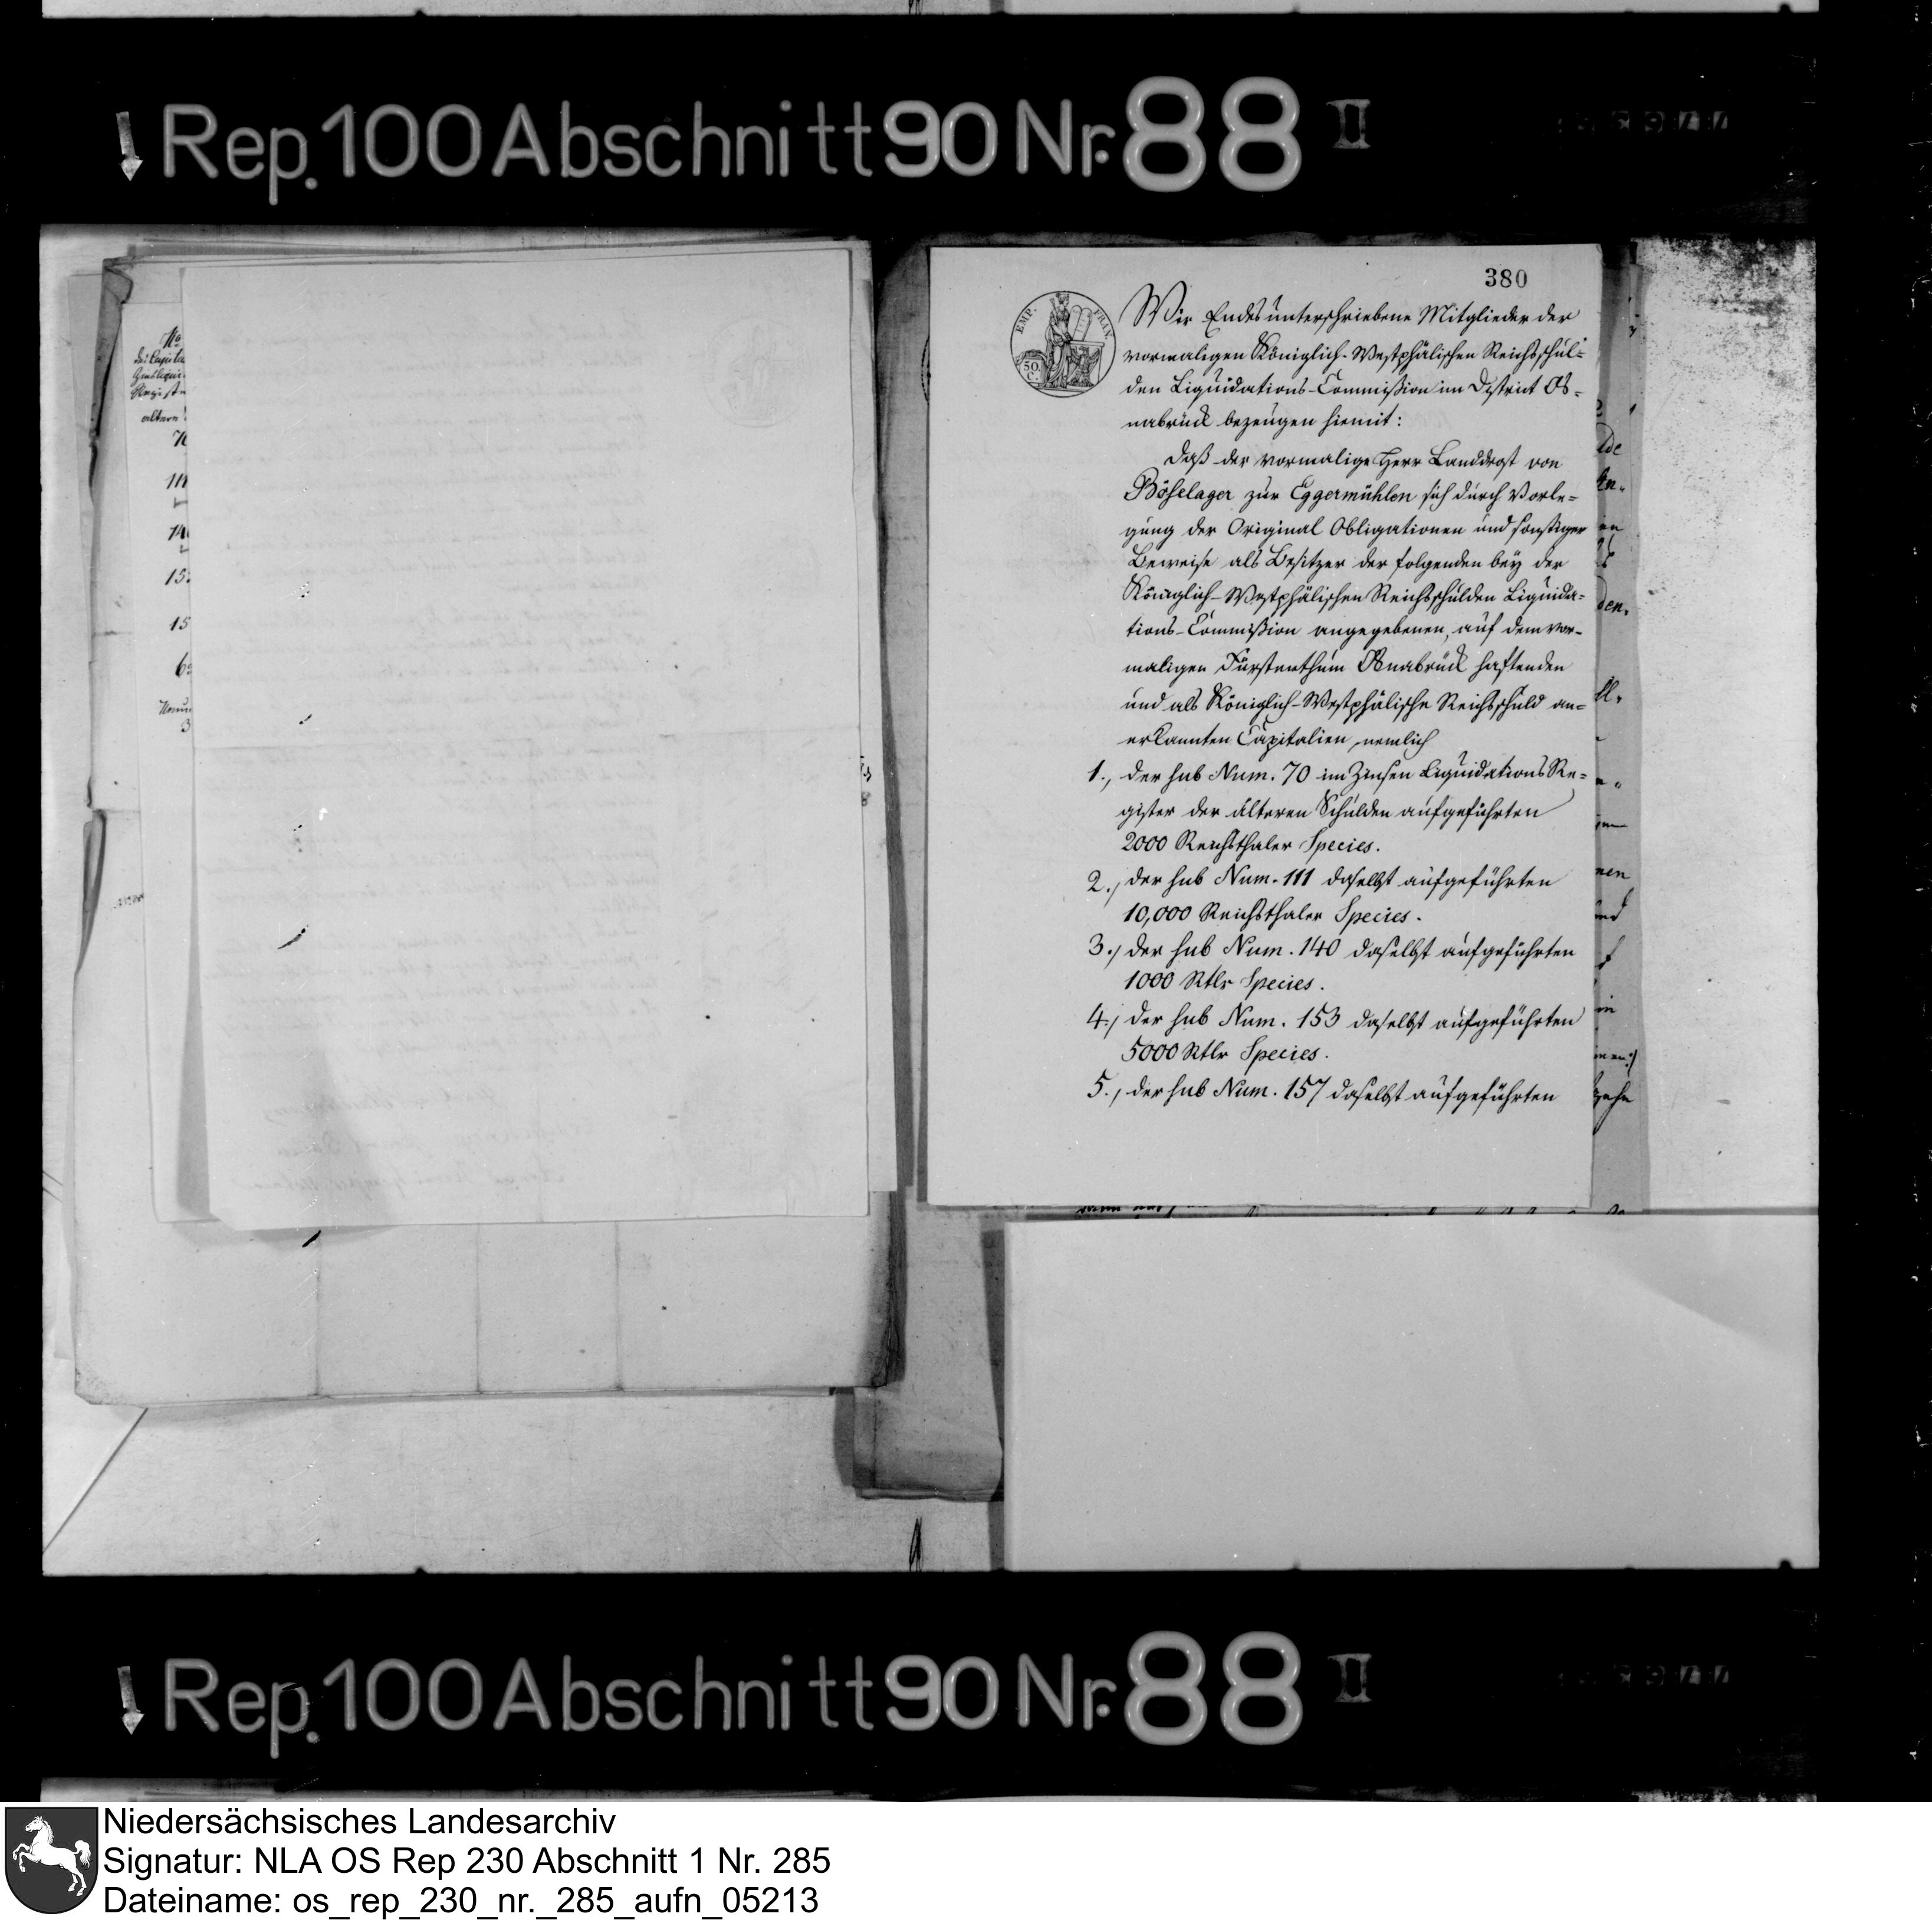 Rep. 100 Abschnitt 90 Nr. 88 II
No
70
111
140
153
15
380
EMP. FRAN.
50. C.
Wir Endesunterschriebene Mitglieder der
vormaligen Königlich-Westphälischen Reichsschul-
den Liquidations-Commißion im District Os-
nabrück bezeugen hiemit:
Daß der vormalige Herr Landdrost von
Böselager zur Eggermühlen sich durch Vorle-
gung der Original Obligationen und sonstiger
Beweise als Besitzer der folgenden bey der
Königlich-Westphälischen Reichsschulden Liquida-
tions-Commißion angegebenen, auf dem vor-
maligen Fürstenthum Osnabrück haftenden
und als Königlich-Westphälische Reichsschuld an-
erkannten Capitalien, nemlich
1., der sub Num. 70 im Zinsen Liquidations Re-
gister der älteren Schulden aufgeführten
2000 Reichsthaler Species.
2., der sub Num. 111 daselbst aufgeführten
10,000 Reichsthaler Species.
3., der sub Num. 140 daselbst aufgeführten
1000 Rtlr Species.
4., der sub Num. 153 daselbst aufgeführten
5000 Rtlr Species.
5., der sub Num. 157 daselbst aufgeführten
Rep. 100 Abschnitt 90 Nr. 88 II
Niedersächsisches Landesarchiv
Signatur: NLA OS Rep 230 Abschnitt 1 Nr. 285
Dateiname: os_rep_230_nr._285_aufn_05213